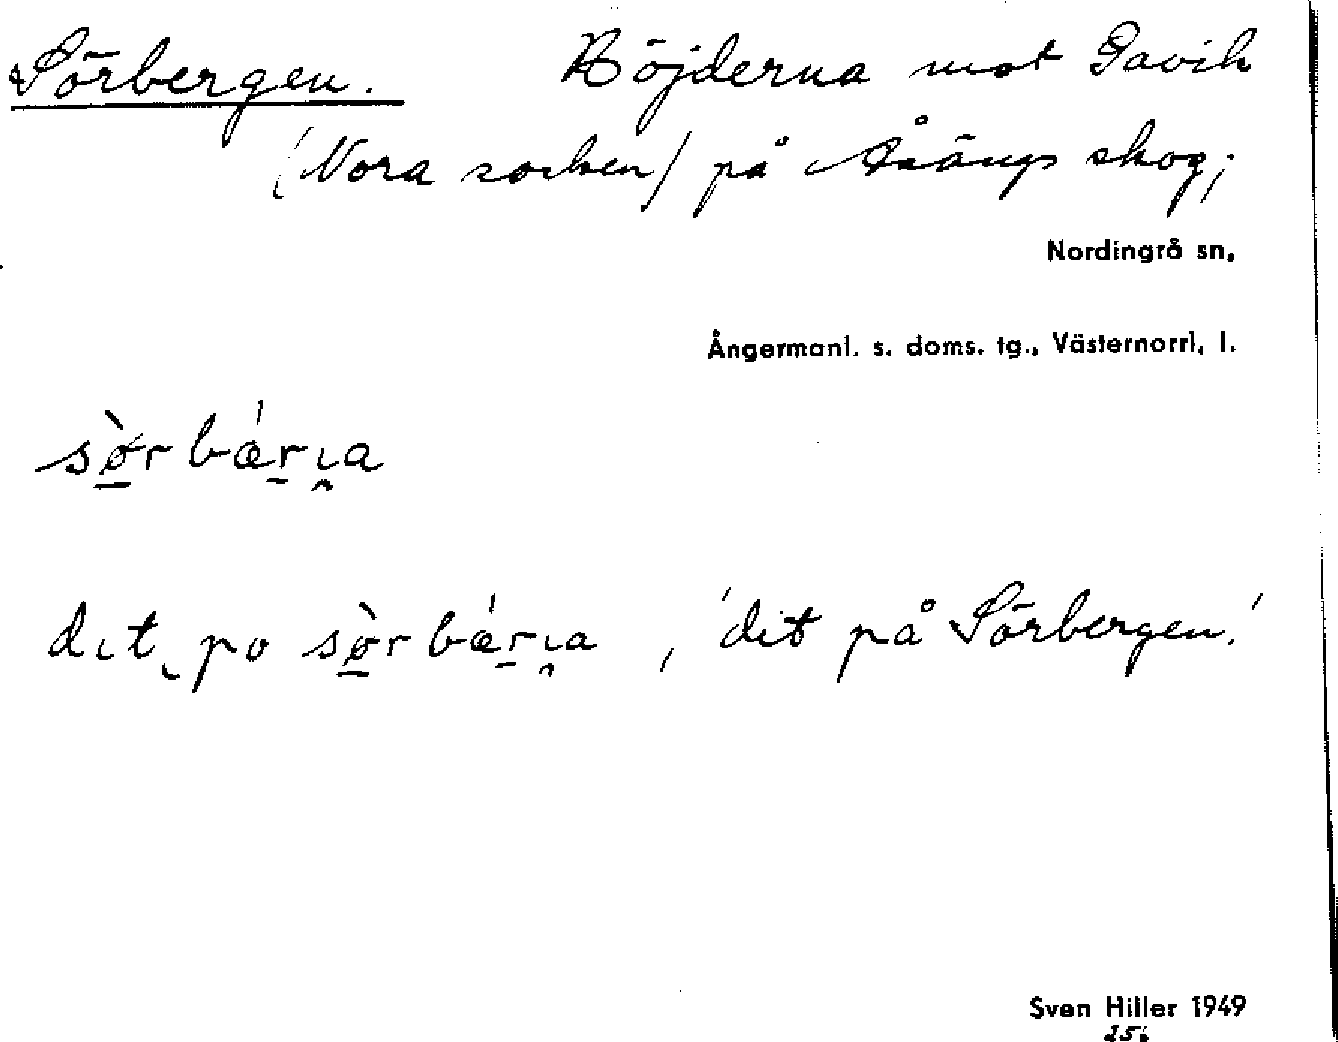 Sörbergen. Höjderna mot Gavik
(Nora socken) på Åsängs skog;
Nordingrå sn,
Ångermanl. s. doms. tg., Västernorrl. l.
sø̀r bǽrɩa
dɩt po sø̀r bǽrɩa, 'dit på Sörbergen.'
Sven Hiller 1949